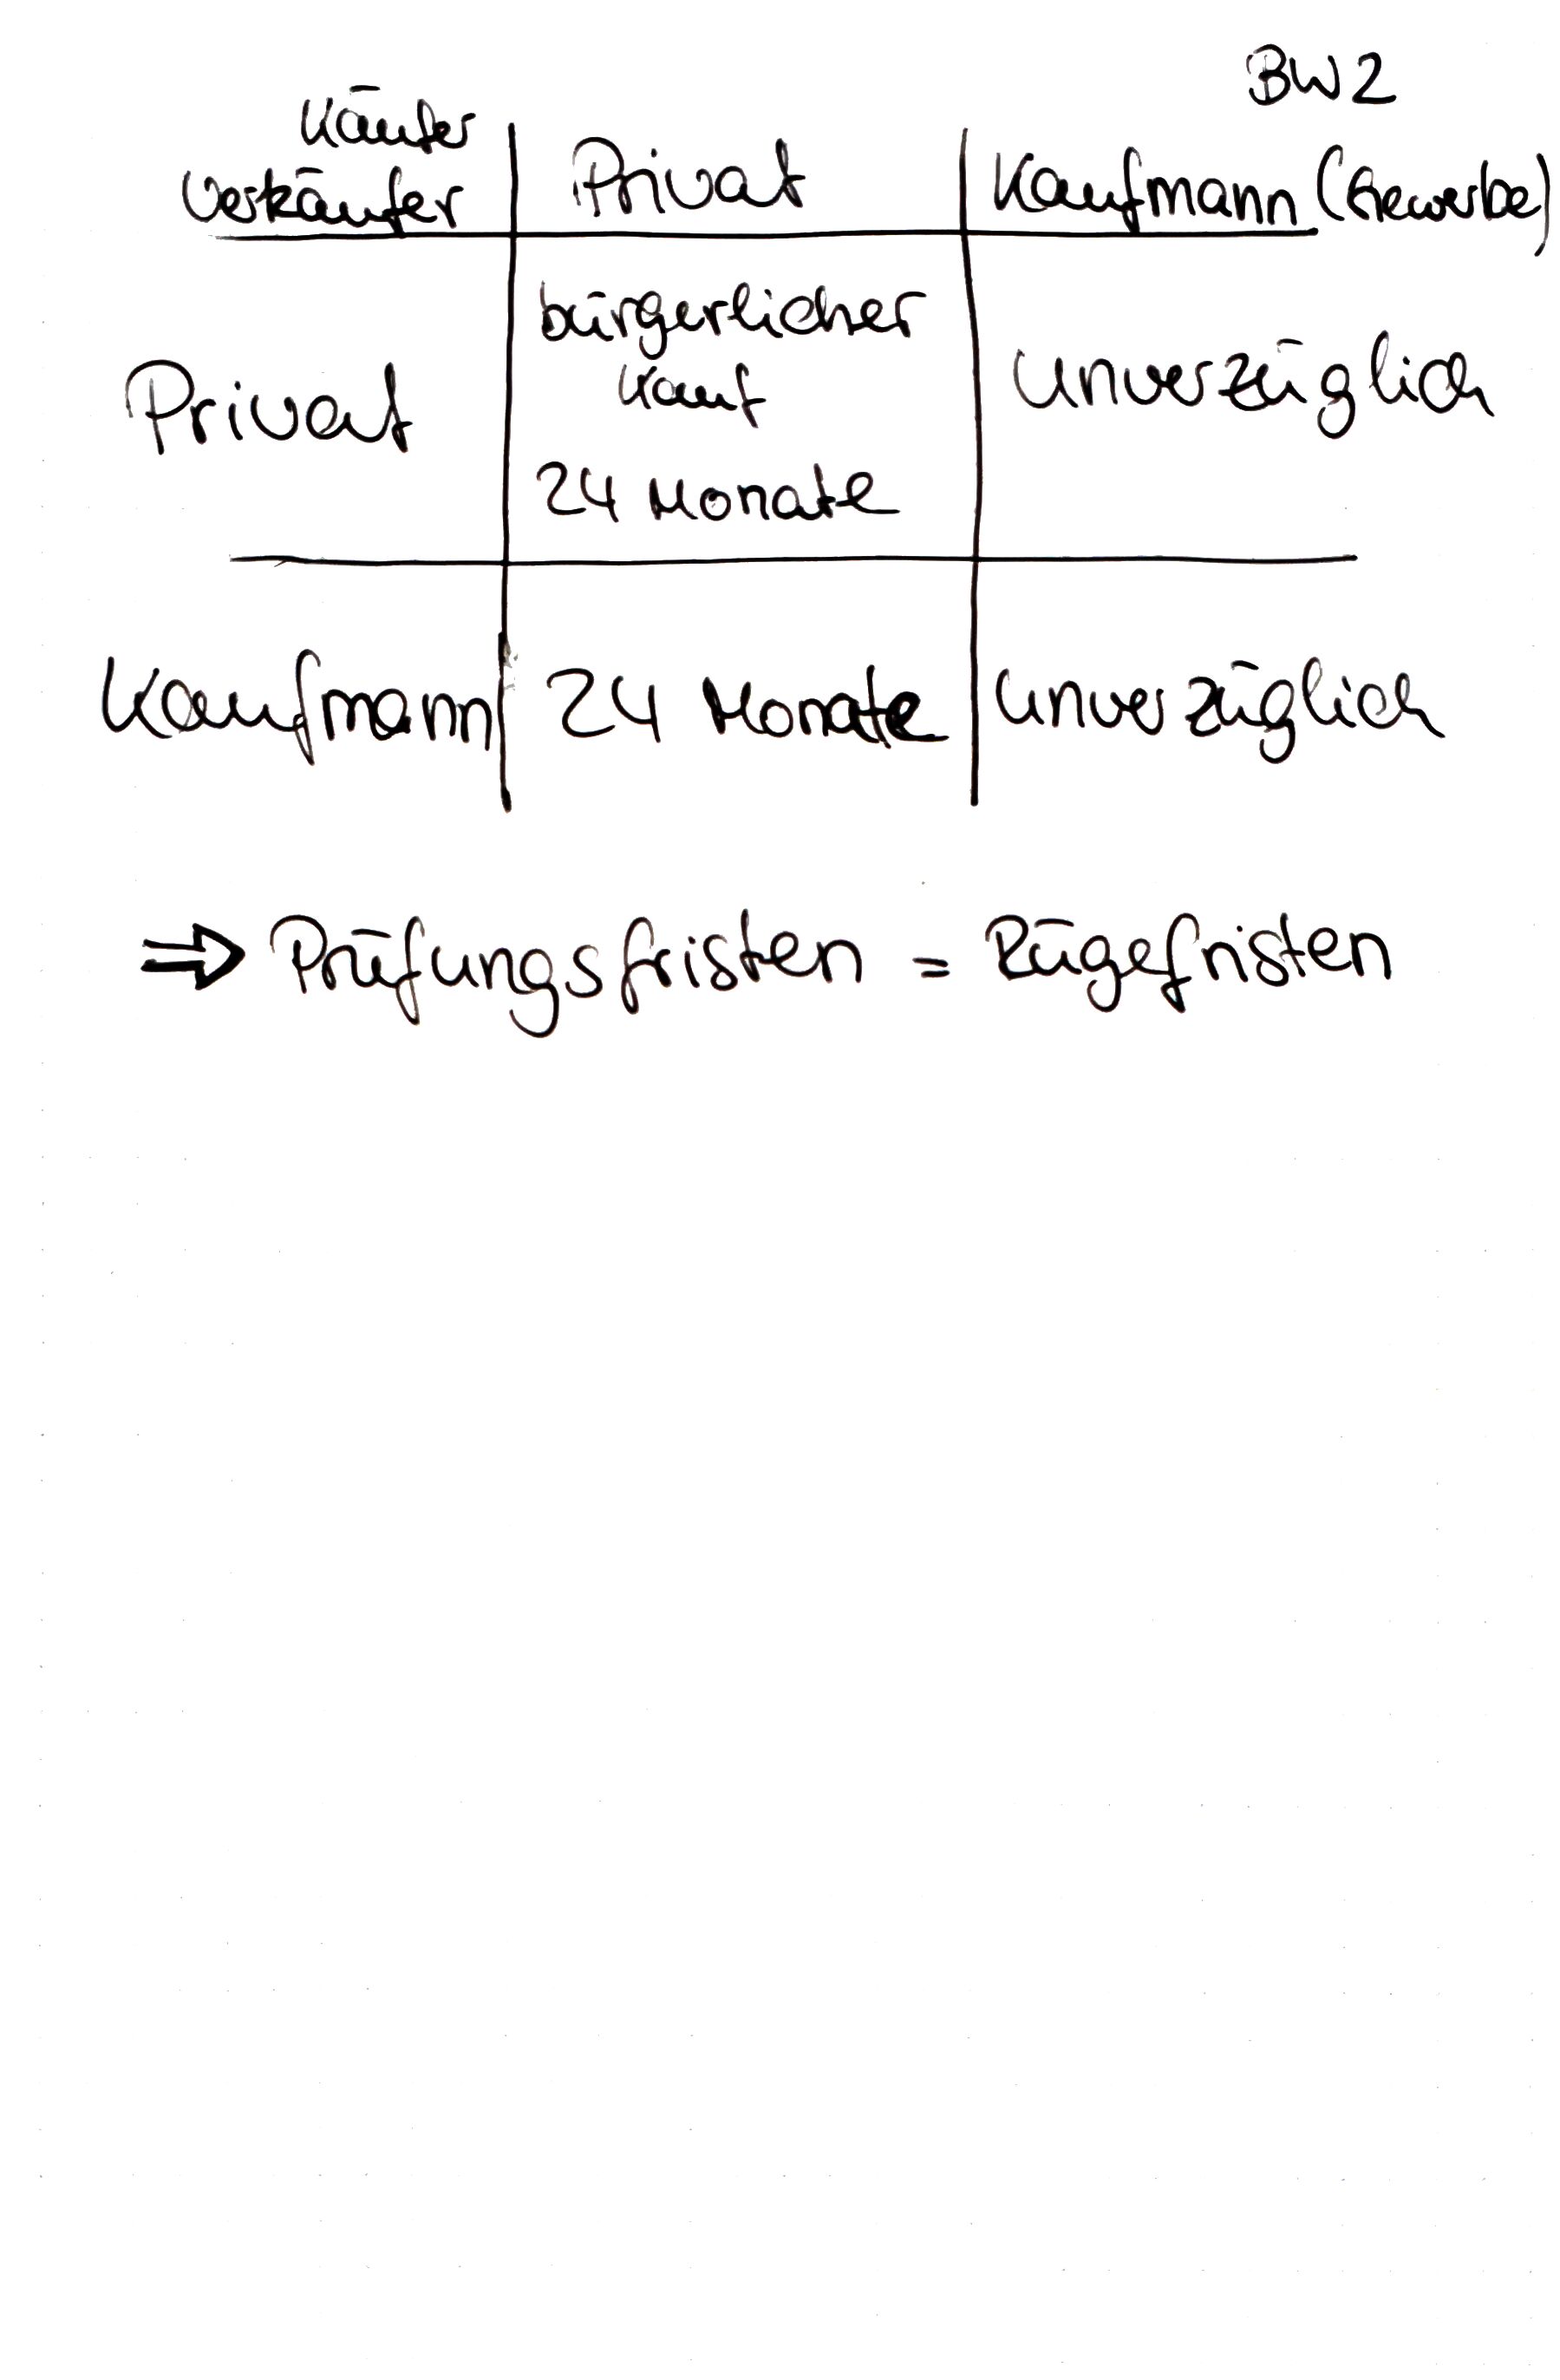 BW2
Käufer
Verkäufer Privat Kaufmann (Gewerbe)
bürgerlicher
Kauf
Privat unverzüglich
24 Monate
Kaufmann 24 Monate unverzüglich
⇒ Prüfungsfristen = Rügefristen